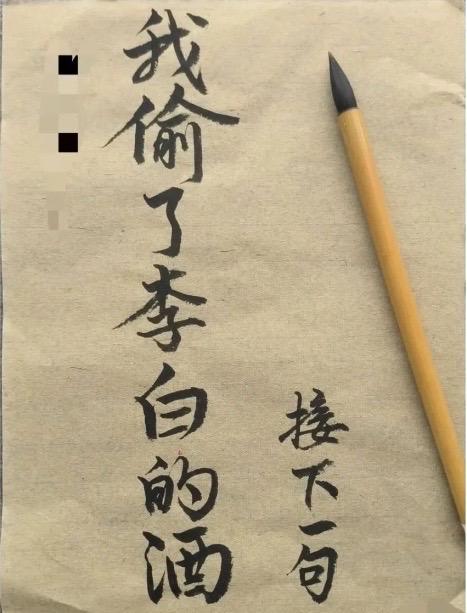 我偷了李白的酒
接下一句